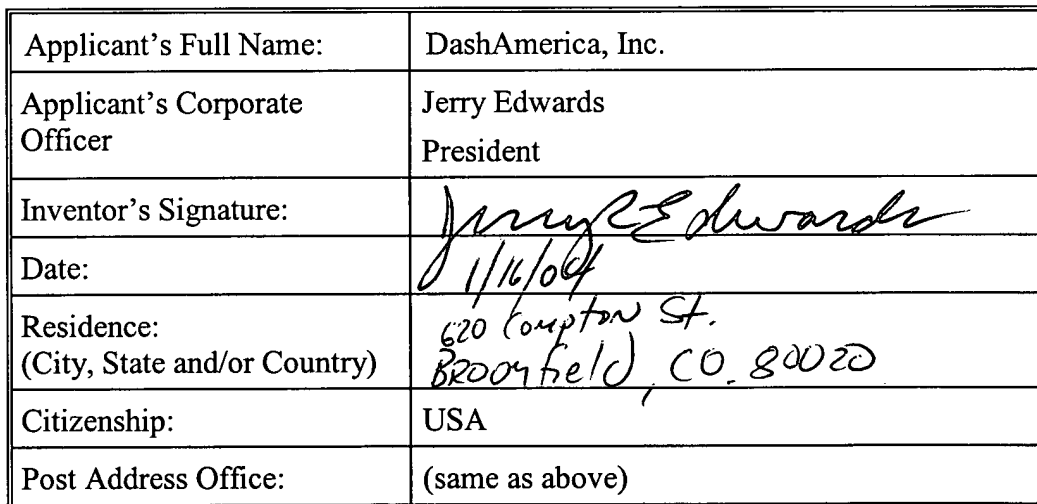 Applicant's Full Name: DashAmerica, Inc.
Applicant's Corporate Officer Jerry Edwards
President
Inventor's Signature: Jerry R Edwards
Date: 1/16/04
Residence: 620 Compton St.
(City, State and/or Country) Broomfield, CO. 80020
Citizenship: USA
Post Address Office: (same as above)